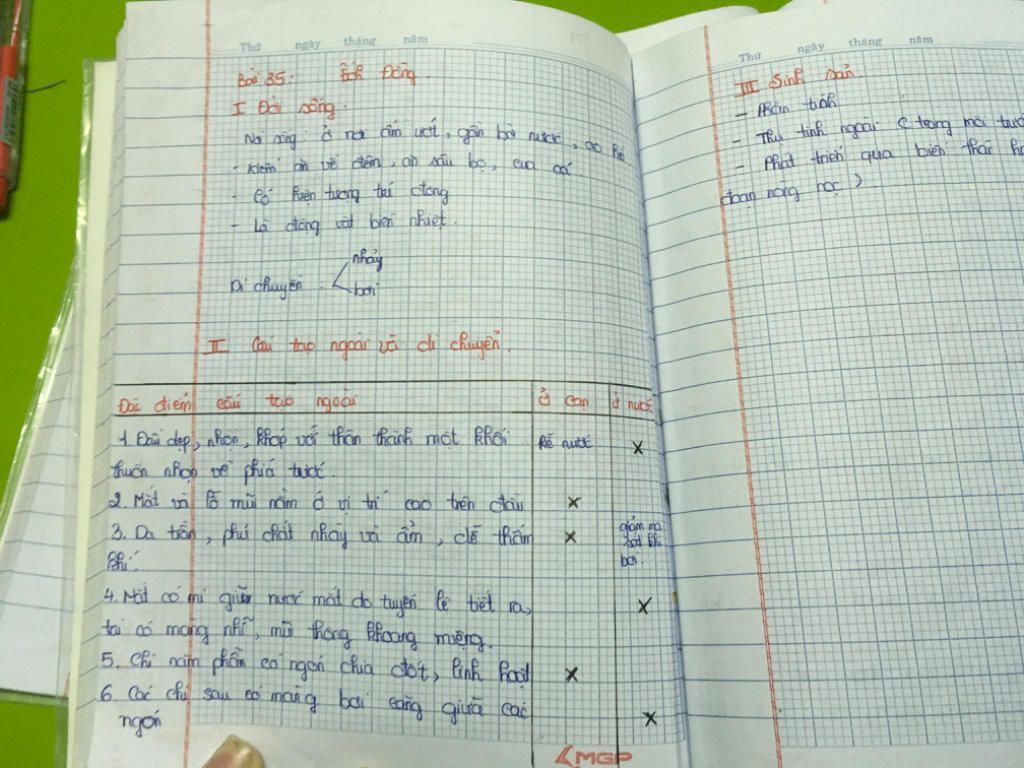 Thứ ngày tháng năm
Bài 35: Ếch Đồng.
I Đời sống.
Nơi sống: ở nơi ẩm ướt, gần bờ nước, ao
- Kiếm ăn về đêm, ăn sâu bọ, cua cá.
- Có hiện tượng trú đông
- Là động vật biến nhiệt.
nhảy
Di chuyển.
bơi
II Cấu tạo ngoài và di chuyển.
Đặc điểm cấu tạo ngoài ở cạn ở nước
1. Đầu dẹp, nhọn, khớp với thân thành một khối rẽ nước X
thuôn nhọn về phía trước.
2. Mắt và lỗ mũi nằm ở vị trí cao trên đầu X
3. Da trần, phủ chất nhày và ẩm, dễ thấm X giảm ma
khí. sát khi
bơi.
4. Mắt có mi giữ nước mắt do tuyến lệ tiết ra, X
tai có màng nhĩ, mũi thông khoang miệng.
5. Chi năm phần có ngón chia đốt, linh hoạt X
6. Các chi sau có màng bơi căng giữa các
ngón X
MGP
Thứ ngày tháng năm
III Sinh sản.
- Phân tính
- Thụ tinh ngoài ( trong môi
- Phát triển qua biến thái
đoạn nòng nọc )